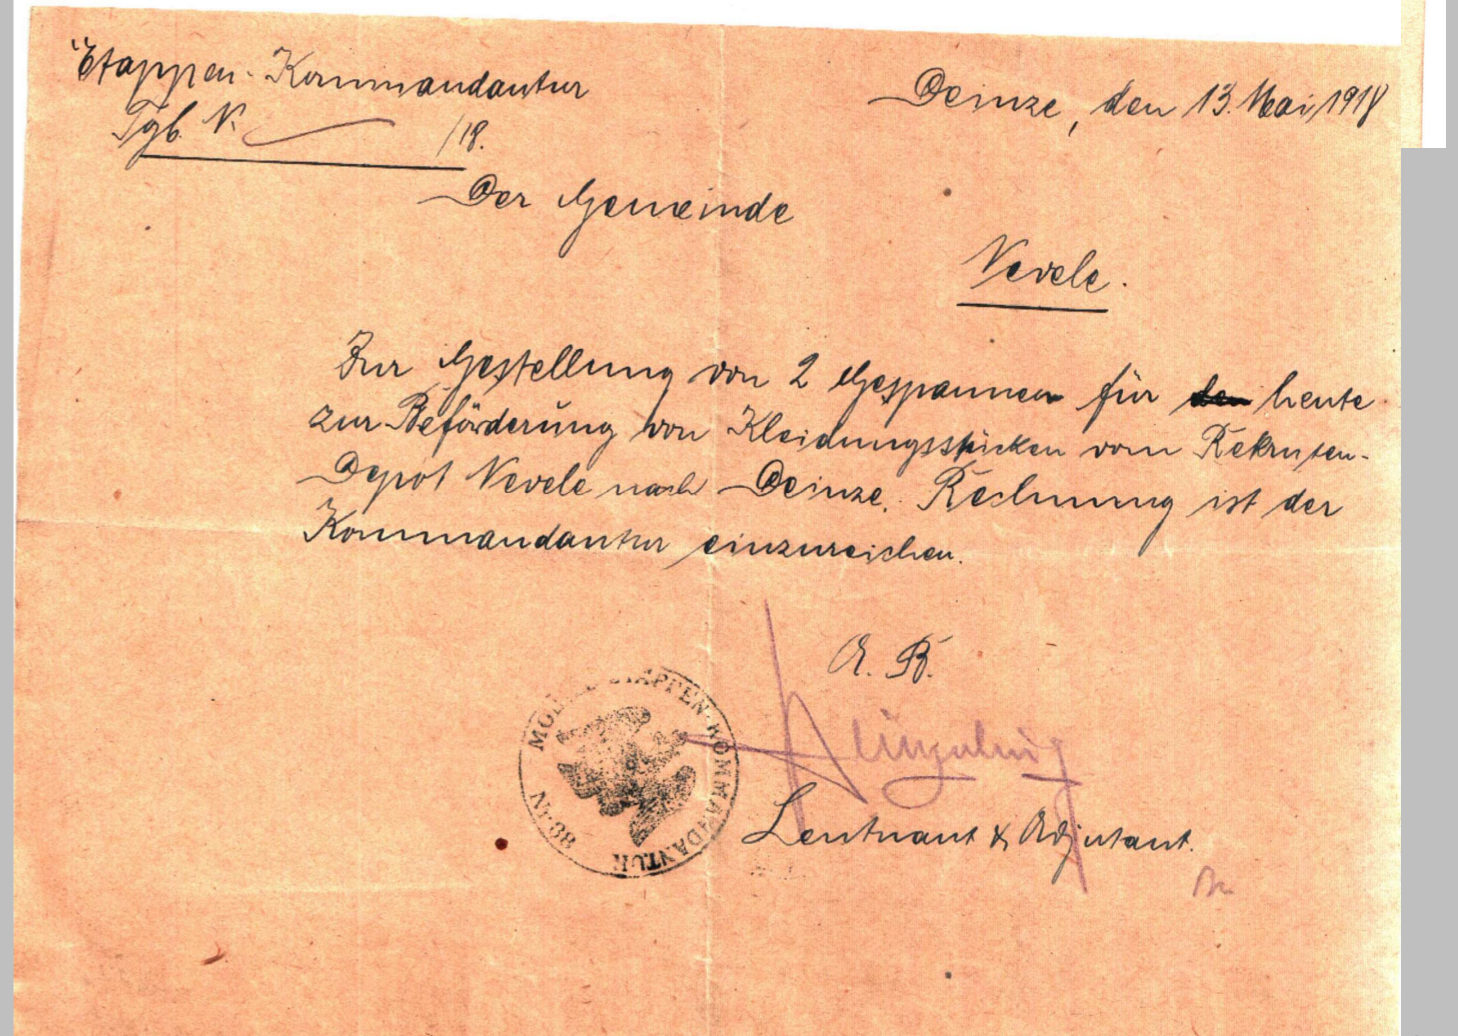 Etappen-Kommandantur
Deinze, den 13. Mai 1918
Tgb. N. /18.
Der Gemeinde
Nevele.
Zur Gestellung von 2 Gespannen für heute
zur Beförderung von Kleidungsstücken vom Rekruten-
Depot Nevele nach Deinze. Rechnung ist der
Kommandantur einzureichen.
A. B.
Leutnant & Adjutant.
ETAPPEN-KOMMANDANTUR